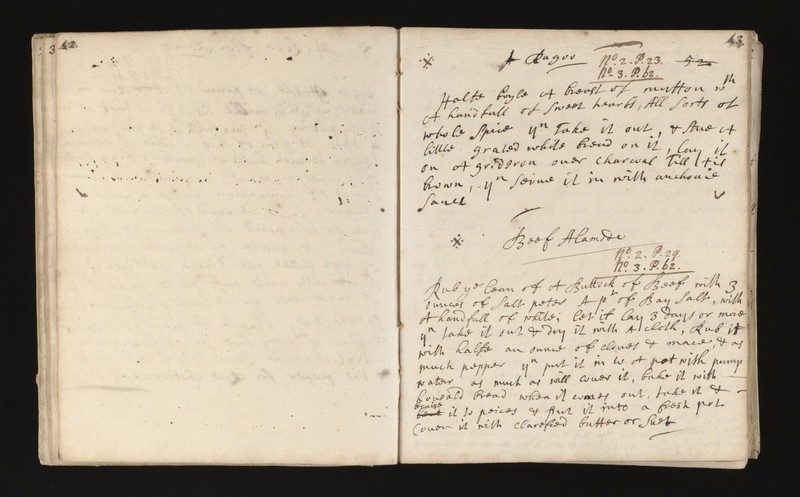 3 42
43
A Ragoo No. 2. P. 23. 52
No. 3. P. 62.
Halfe boyle A breast of mutton wth
A handfull of sweet hearbs, All sorts of
whole spice yn take it out, & strue A
little grated white bread on it, lay it
on A gridiron ouer charcoal till tis
brown, yn serue it in with anchouie
sauce
Beef Alamode
No. 2. P. 29.
No. 3. P. 62.
Rub ye lean of A Buttock of Beef with 3
ounces of salt peter A pt of Bay salt, with
A handfull of white; let it lay 3 days or more
yn take it out & dry it with A cloth, Rub it
with halfe an ounce of cloues & mace, & as
much pepper yn put it in to A pot with pump
water as much as will couer it, bake it with
houshald bread when it comes out, take it &
bruise
it to peices & put it into a fresh pot
Couer it with clarefied butter or suet